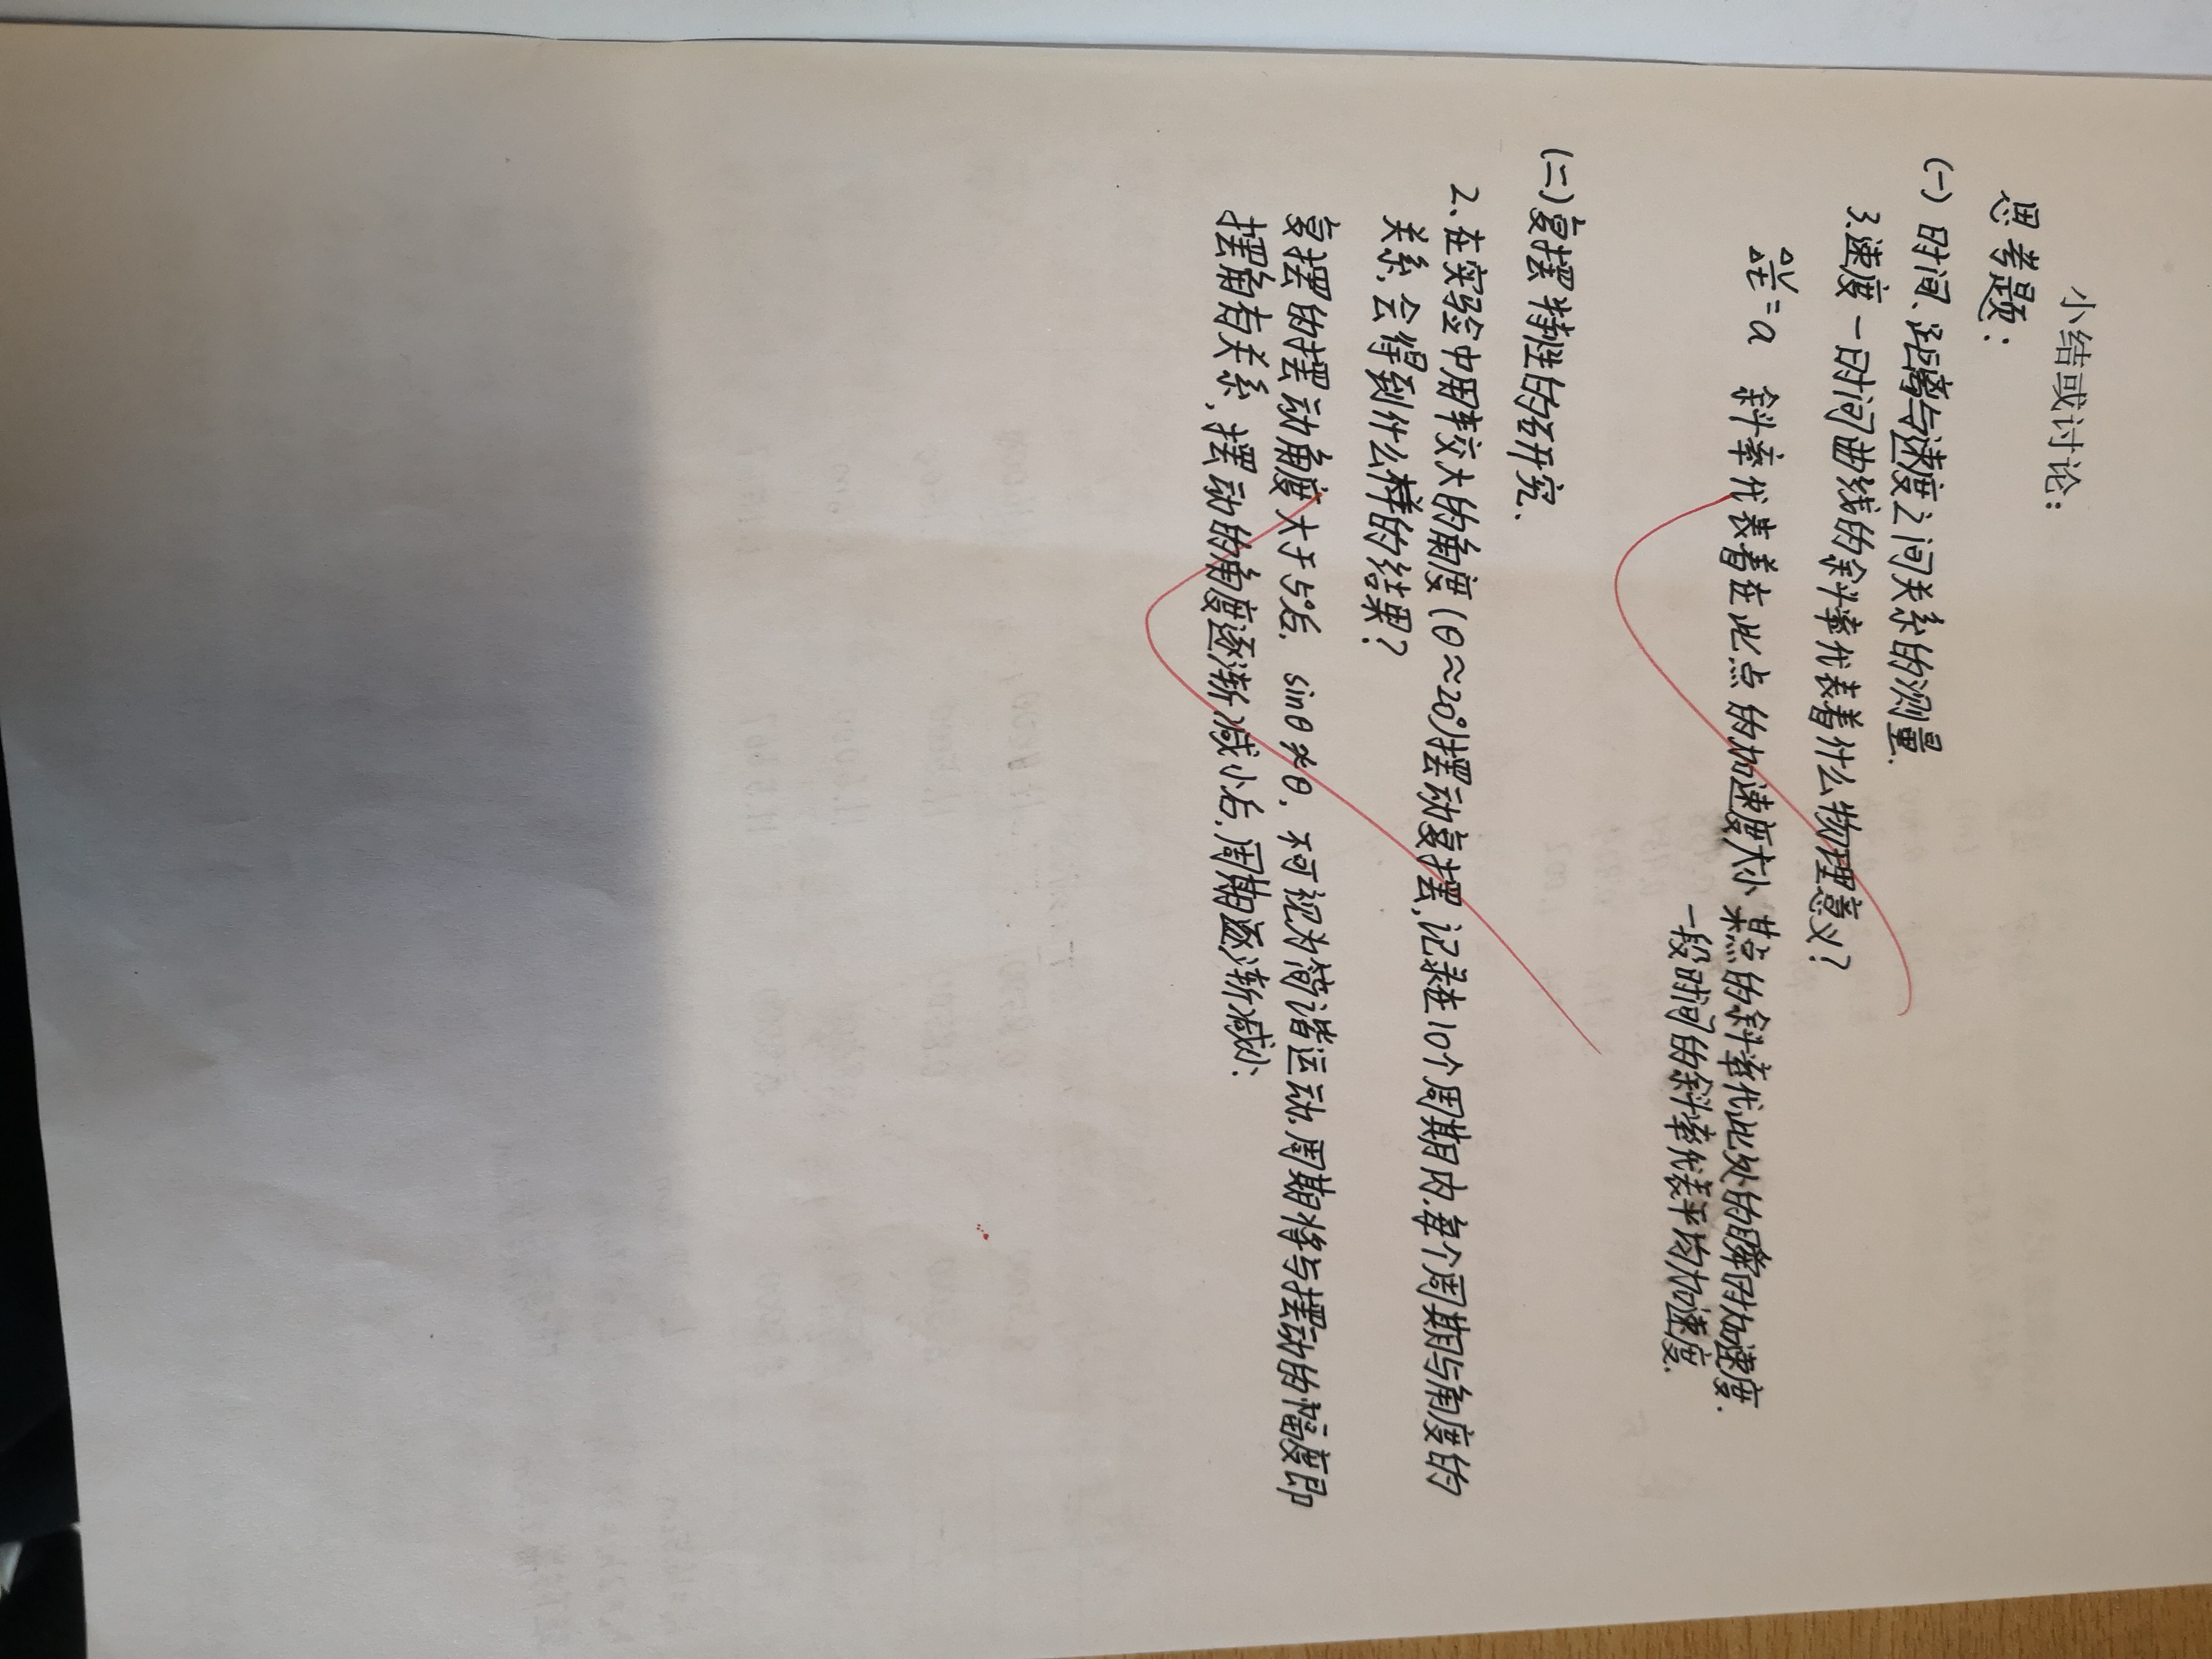 小结或讨论:
思考题:
(一) 时间、距离与速度之间关系的测量.
3.速度一时间曲线的斜率代表着什么物理意义?
ΔV/Δt=a 斜率代表着在此点的加速度大小 某点的斜率代此处的瞬时加速度.
一段时间的斜率代表平均加速度.
(二)复摆特性的研究.
2、在实验中用较大的角度(θ≈20°)摆动复摆,记录在10个周期内.每个周期与角度的
关系,会得到什么样的结果?
复摆的摆动角度大于5°后, sinθ≉θ, 不可视为简谐运动.周期将与摆动的幅度即
摆角有关系,摆动的角度逐渐减小后,周期逐渐减小.